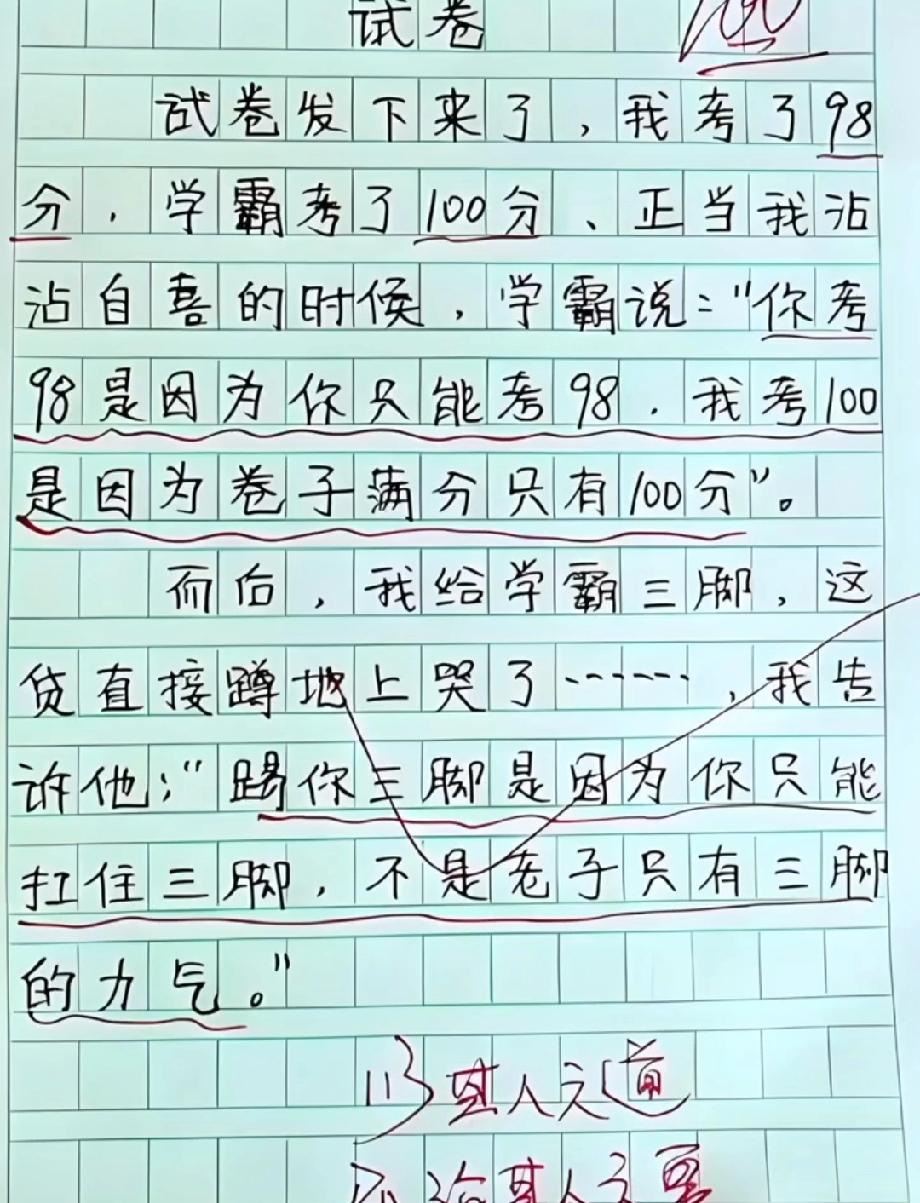 试卷
100
试卷发下来了，我考了98
分，学霸考了100分、正当我沾
沾自喜的时候，学霸说："你考
98是因为你只能考98．我考100
是因为卷子满分只有100分"。
而后，我给学霸三脚，这
货直接蹲地上哭了……，我告
诉他："踢你三脚是因为你只能
扛住三脚，不是老子只有三脚
的力气。"
以其人之道
还治其人之